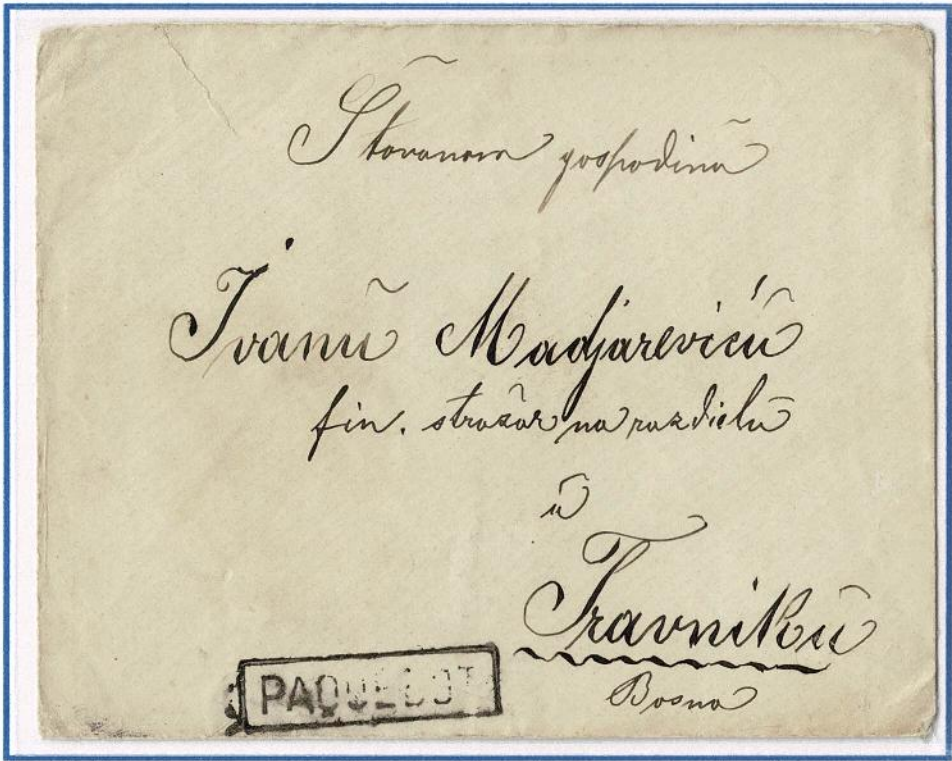 Štovanom gospodinu
Ivanu Madjareviću
fin. stražar na razdielu
u
Travniku
Bosna
PAQUEBOT